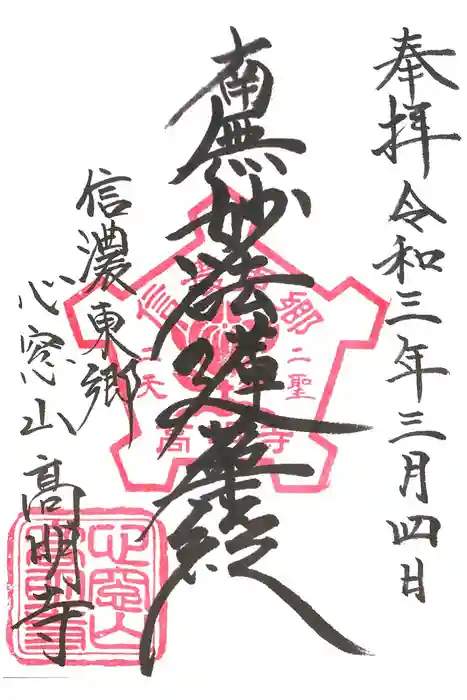 奉拝 令和三年三月四日
南無妙法蓮華経
信濃東郷
心窓山 高明寺
信 郷
二天
二聖
高 寺
心窓山